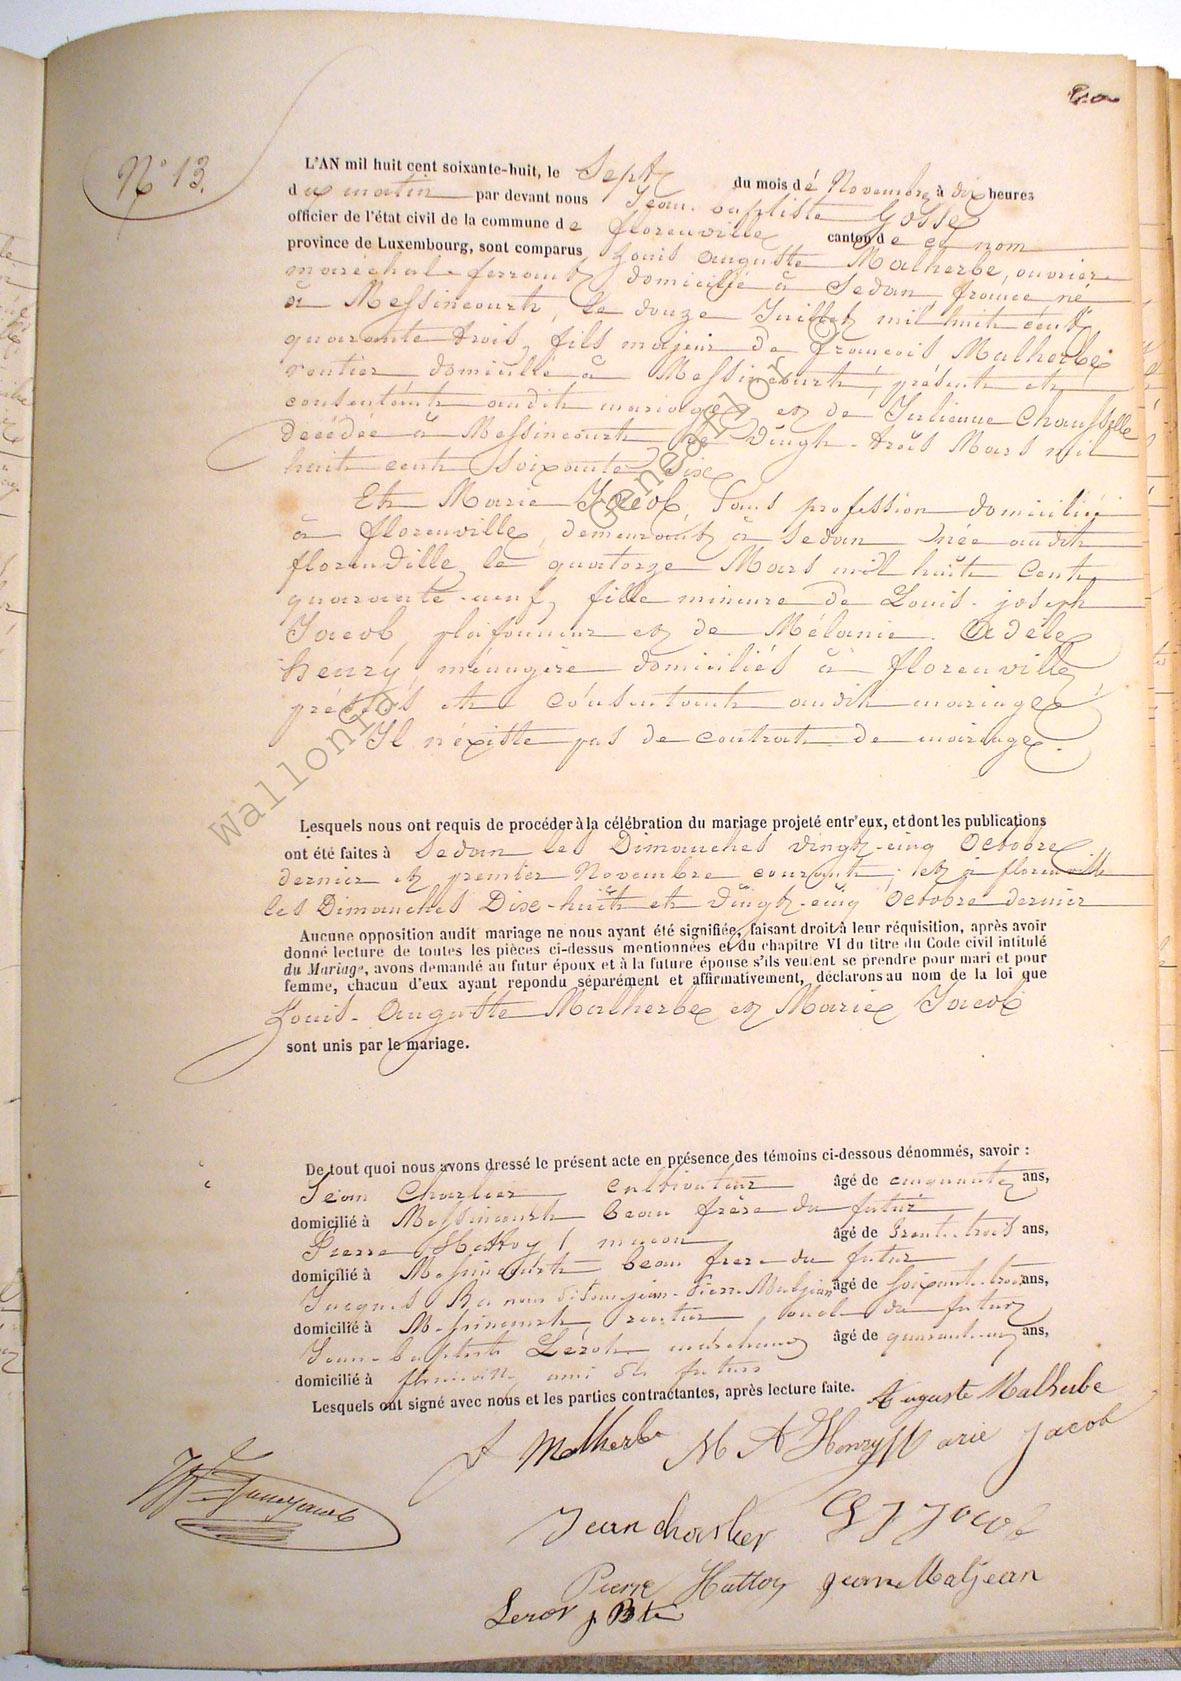 N° 13.
L'AN mil huit cent soixante-huit, le Sept du mois dé Novembre à dix heures
du matin par devant nous Jean-baptiste Gosse
officier de l'état civil de la commune de florenville canton de ce nom
province de Luxembourg, sont comparus Louis auguste Malherbe, ouvrier
maréchal-ferrant domicilié à Sedan, france né
à Messincourt, le douze Juillet mil huit cent
quarante trois, fils majeur de françois Malherbe
rentier domicilié à Messincourt, présent et
consentant audit mariage et de Julienne Chausselle
décédée à Messincourt le Vingt-trois Mars mil
huit cent soixante Six
Et Marie Jacob, Sans profession domiciliée
à florenville, demeurant à Sedan née audit
florenville le quatorze Mars mil huit Cent
quarante-neuf, fille mineure de Louis-joseph
Jacob plafonneur et de Mélanie Adèle
henry, ménagère domiciliés à florenville
présents et consentant audit mariage
Il n'existe pas de contrat de mariage.
Lesquels nous ont requis de procéder à la célébration du mariage projeté entr'eux, et dont les publications
ont été faites à Sedan les Dimanches vingt-cinq Octobre
dernier et premier Novembre courant, et à florenville
les Dimanches Dix-huit et Vingt-cinq Octobre dernier
Aucune opposition audit mariage ne nous ayant été signifiée, faisant droit à leur réquisition, après avoir
donné lecture de toutes les pièces ci-dessus mentionnées et du chapitre VI du titre du Code civil intitulé
du Mariage, avons demandé au futur époux et à la future épouse s'ils veulent se prendre pour mari et pour
femme, chacun d'eux ayant repondu séparément et affirmativement, déclarons au nom de la loi que
Louis-Auguste Malherbe et Marie Jacob
sont unis par le mariage.
De tout quoi nous avons dressé le présent acte en présence des témoins ci-dessous dénommés, savoir :
Jean Charlier cultivateur âgé de cinquante ans,
domicilié à Messincourt beau frère du futur
Pierre Hattoy, maçon âgé de trente-trois ans,
domicilié à Messincourt beau frère du futur
Jacques jean-Pierre Maljean âgé de soixante-trois ans,
domicilié à Messincourt, rentier, oncle du futur
Jean-baptiste Léroy âgé de ans,
domicilié à florenville ami du futur
Lesquels ont signé avec nous et les parties contractantes, après lecture faite. Auguste Malherbe
f Malherbe M A Henry Marie Jacob
Jean charlier L J Jacob
Pierre Hattoy jean Maljean
Leroy j Bte
Wallonia Geneanet.org ©